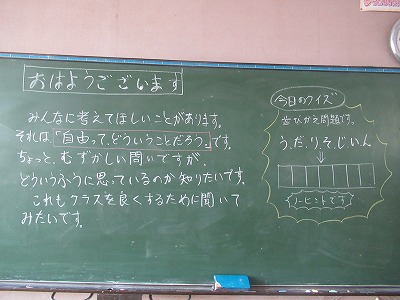 おはようございます
みんなに考えてほしいことがあります。
それは「自由って、どういうことだろう。」です。
ちょっと、むずかしい問いですが、
どういうふうに思っているのか知りたいです。
これもクラスを良くするために聞いて
みたいです。
今日のクイズ
並びかえ問題です。
う、だ、り、そ、じ、い、ん
ノーヒントです